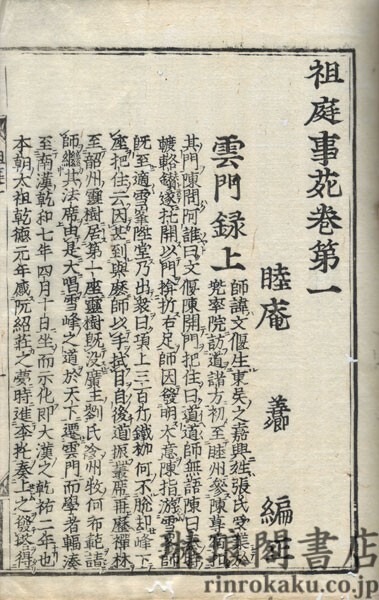 祖庭事苑卷第一
睦庵 善 編
雲門録上
師諱文偃生東吳之嘉興姓張氏受業於
兜率院訪道諸方初至睦州參陳尊宿
其門陳問阿誰曰文偃陳開門把住曰道道師無語陳曰
轢鑽遂拓開以門揜折右足師因發明大意陳指游雪
既至適雪峯陞堂乃出衆曰項上三百斤鐵枷何不脫却峰下
座把住云因甚到與麽師以手拭目自後道振叢席再歷禪林
至韶州靈樹居第一座靈樹旣没廣主劉氏命州牧何布範請
師繼其法席由是大唱雪峰之道於天下遷雲門而學者輻湊
至南漢乾和七年四月十日坐而示化即大漢之乾祐二年也
本朝太祖乾德元年感阮紹莊之夢時進李托奏上之發塔得
琳琅閣書店
rinrokaku.co.jp